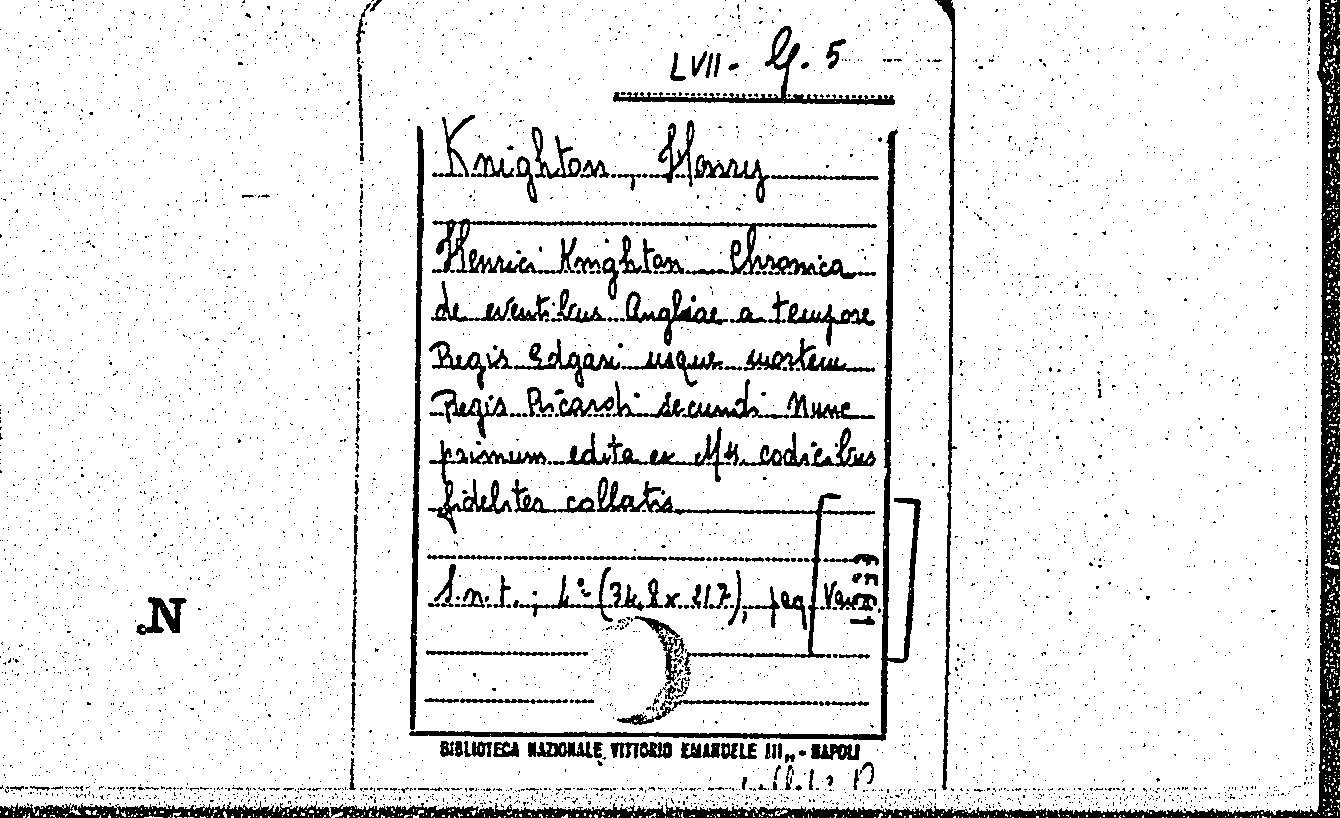 LVII - G. 5
Knighton, Henry
Henrici Knighton Chronica
de eventibus Angliae a tempore
Regis Edgari usque mortem
Regis Ricardi secundi Nunc
primum edita ex Mss. codicibus
fideliter collatis.
S.n.t.; 4° (34,8 x 21.7), pag. Varie
BIBLIOTECA NAZIONALE VITTORIO EMANUELE III„ - NAPOLI
N